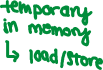 temporary
in memory
↳ load/store